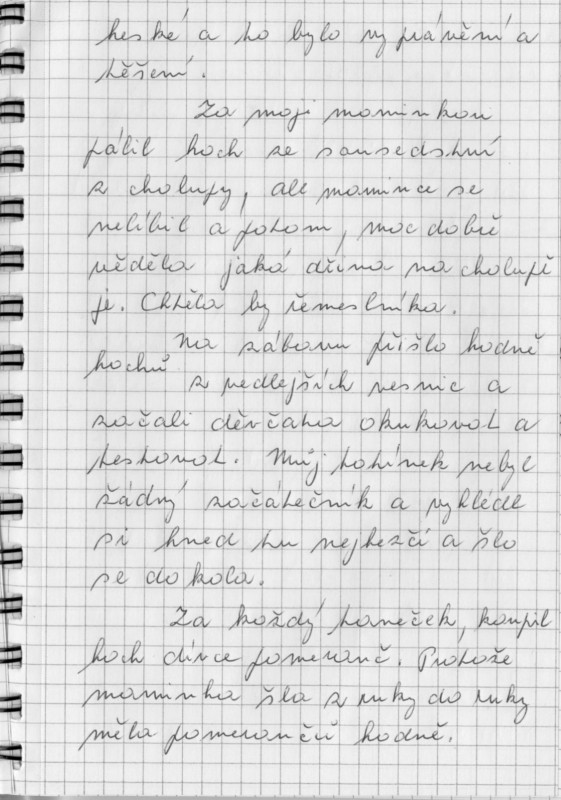 heské a to bylo vyprávění a
těšení.
Za moji maminkou
pálil hoch ze sousedství
z chalupy, ale mamince se
nelíbil a potom, moc dobře
věděla jaká dřina na chalupě
je. Chtěla by řemeslníka.
Na zábavu přišlo hodně
hochů z vedlejších vesnic a
začali děvčata okukovat a
testovat. Můj tatínek nebyl
žádný začátečník a vyhlédl
si hned tu nejhezčí a šlo
se do kola.
Za každý taneček, koupil
hoch dívce pomeranč. Protože
maminka šla z ruky do ruky
měla pomerančů hodně.